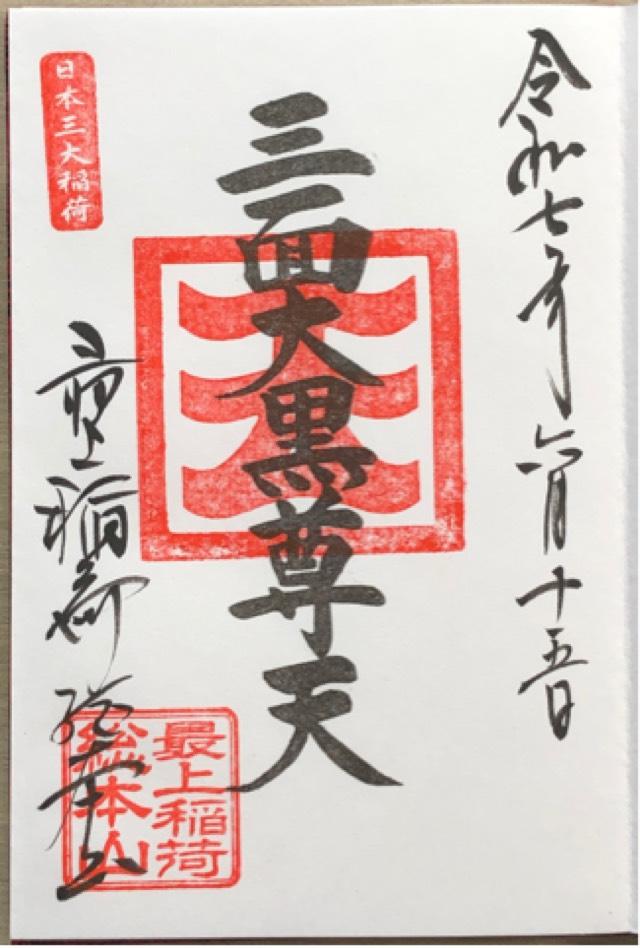 令和七年六月十五日
三面大黒尊天
日本三大稲荷
最上稲荷 総本山
最上稲荷
総本山